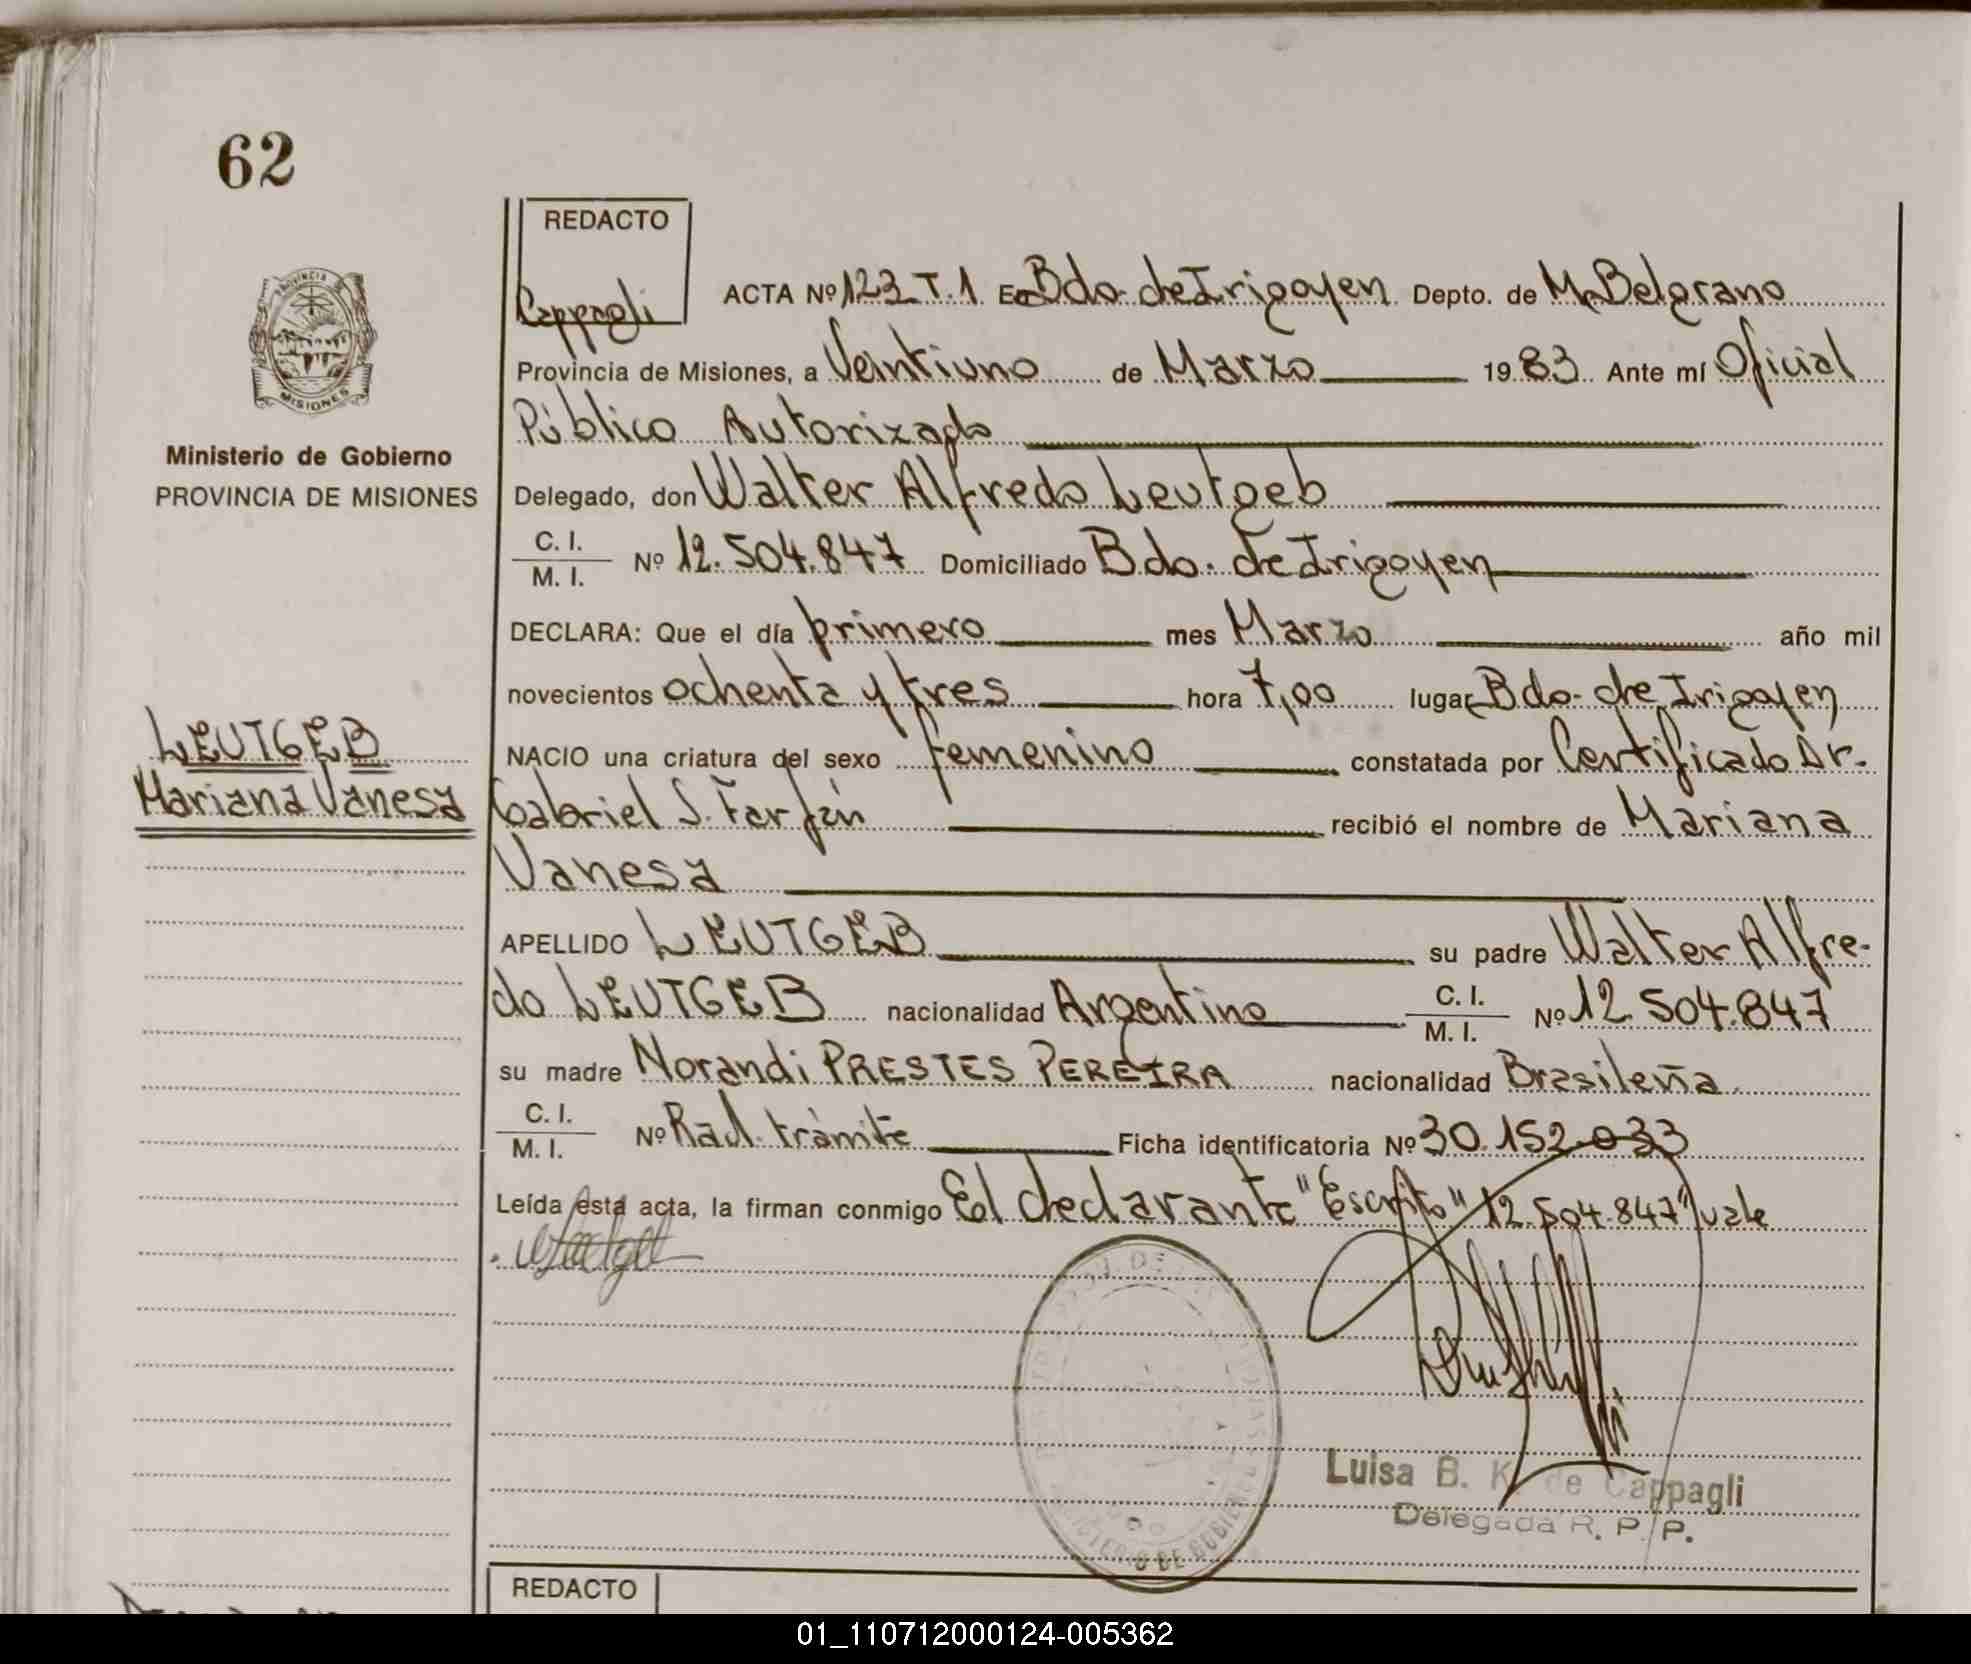 62
REDACTO
Cappagli
ACTA Nº 123 T.1 En Bdo. de Irigoyen Depto. de M. Belgrano
Provincia de Misiones, a Veintiuno de Marzo 1983 Ante mí Oficial
Público Autorizado
PROVINCIA
MISIONES
Ministerio de Gobierno
PROVINCIA DE MISIONES
Delegado, don Walter Alfredo Leutgeb
C. I.
M. I. Nº 12.504.847 Domiciliado Bdo. de Irigoyen
DECLARA: Que el día primero mes Marzo año mil
novecientos ochenta y tres hora 7,00 lugar Bdo. de Irigoyen
LEUTGEB
Mariana Vanesa
NACIO una criatura del sexo femenino constatada por Certificado Dr.
Gabriel S. Farfán recibió el nombre de Mariana
Vanesa
APELLIDO LEUTGEB su padre Walter Alfre-
do LEUTGEB nacionalidad Argentino C. I.
M. I. Nº 12.504.847
su madre Norandi PRESTES PEREIRA nacionalidad Brasileña.
C. I.
M. I. Nº Rad. trámite Ficha identificatoria Nº 30.152.033
Leída esta acta, la firman conmigo El declarante "Escrito" 12.504.847" vale
MINISTERIO DE GOBIERNO
Luisa B. K. de Cappagli
Delegada R. P. P.
REDACTO
01_110712000124-005362